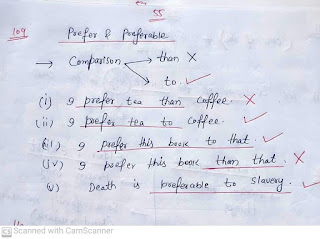 55
109 Prefer & Preferable
→ Comparison → than ✗
→ to ✓
(i) I prefer tea than coffee. ✗
(ii) I prefer tea to coffee. ✓
(iii) I prefer this book to that. ✓
(iv) I prefer this book than that. ✗
(v) Death is preferable to slavery. ✓
CS Scanned with CamScanner